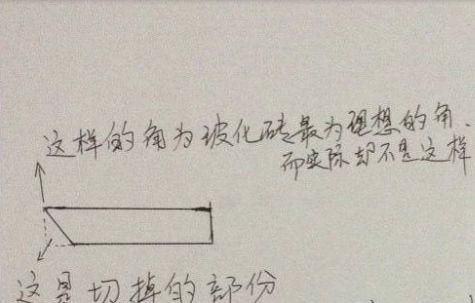 这样的角为玻化砖最为理想的角.
而实际却不是这样
这是切掉的部份